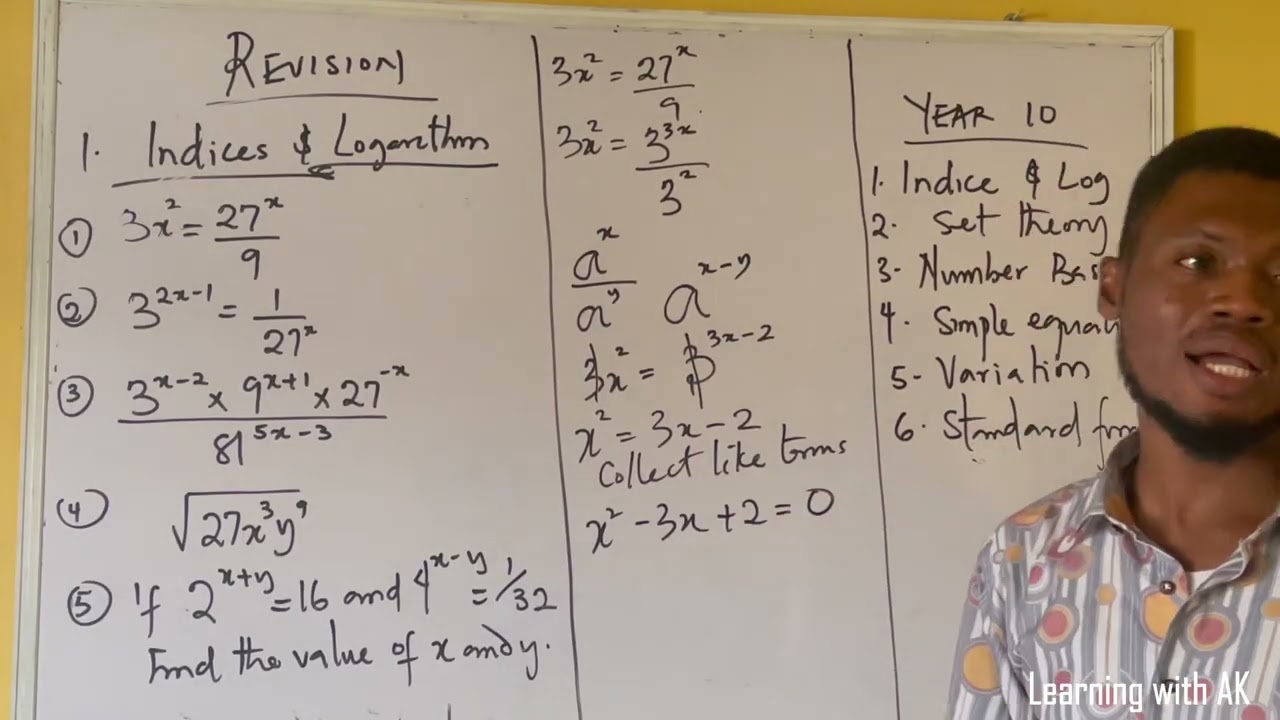 REVISION
1. Indices & Logarithm
① 3x² = 27ˣ/9
② 3²ˣ⁻¹ = 1/27ˣ
③ 3ˣ⁻² × 9ˣ⁺¹ × 27⁻ˣ / 81⁵ˣ⁻³
④ √27x³y⁹
⑤ If 2ˣ⁺ʸ = 16 and 4ˣ⁻ʸ = 1/32
Find the value of x and y.
3x² = 27ˣ/9
3x² = 3³ˣ/3²
aˣ/aʸ aˣ⁻ʸ
3x² = 3³ˣ⁻²
x² = 3x - 2
Collect like terms
x² - 3x + 2 = 0
YEAR 10
1. Indice & Log
2. Set theory
3. Number Bas
4. Simple equa
5. Variation
6. Standard
Learning with AK